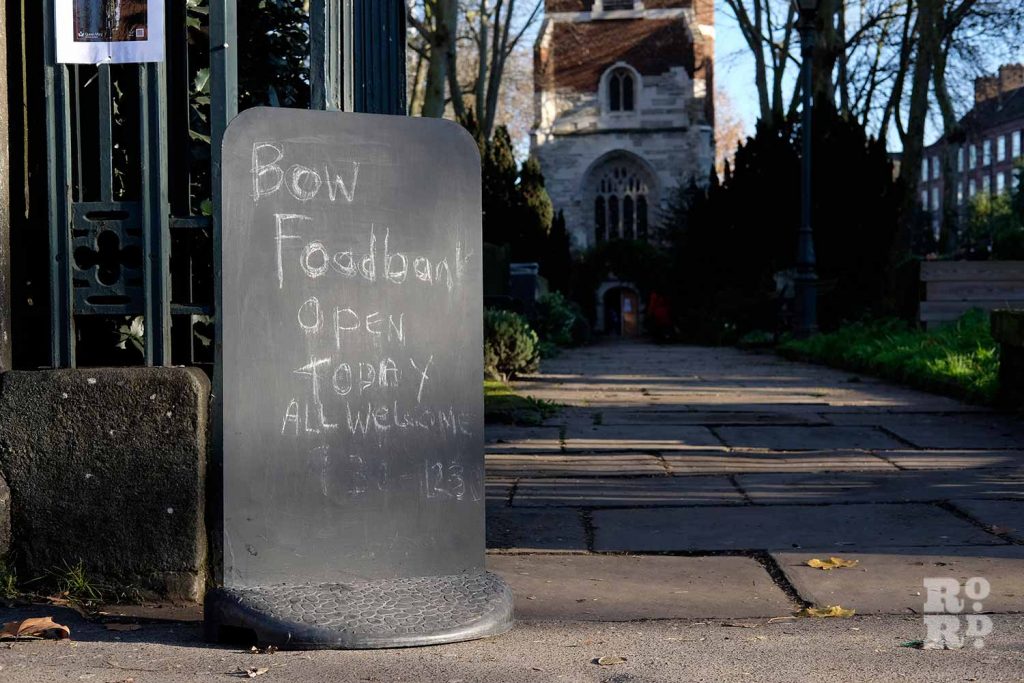 BOW
Foodbank
OPEN
TODAY
ALL WELCOME
RO
RD